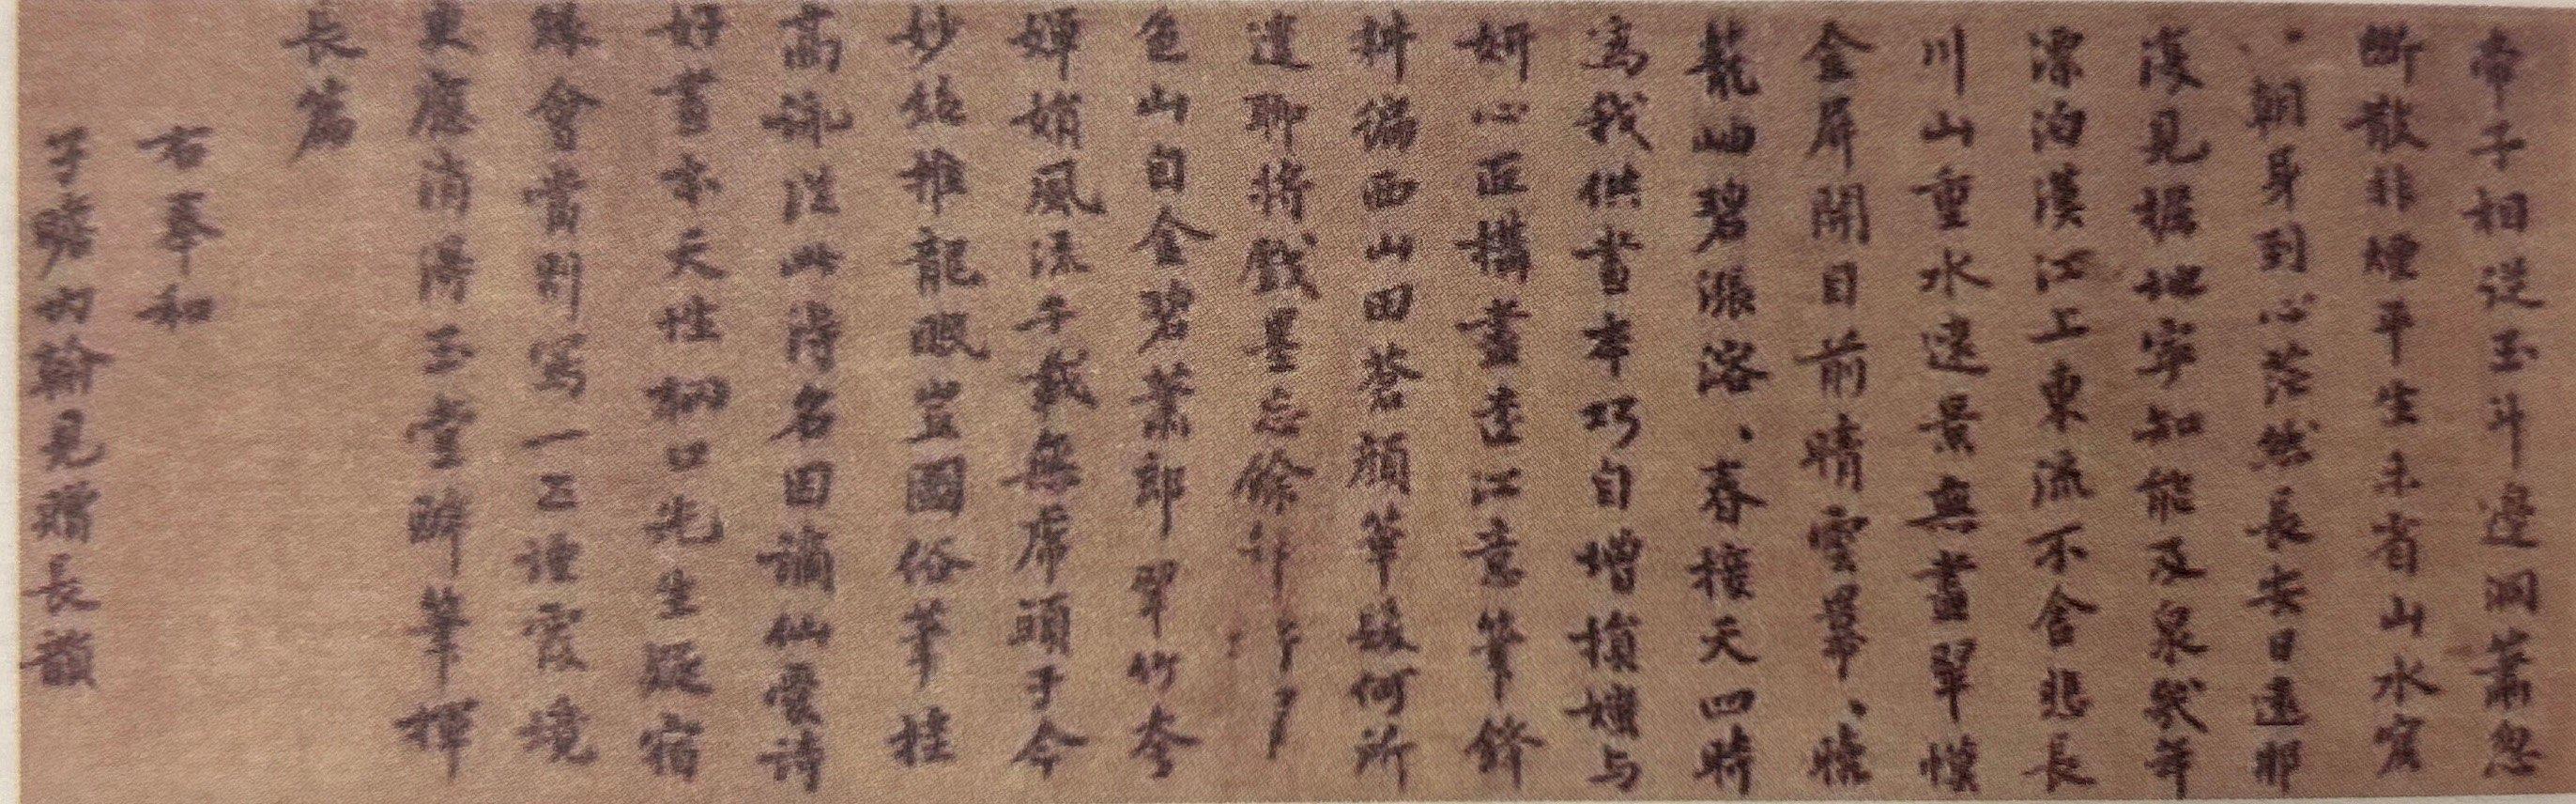 帝子相從玉斗邊洞簫忽
斷散非煙平生未省山水窟
一朝身到心茫然長安日遠那
復見掘地寧知能及泉幾年
漂泊漢江上東流不舍悲長
川山重水遠景無盡翠幙
金屏開目前晴雲羃羃曉
籠岫碧漲溶溶春接天四時
為我供畫本巧自增損媸与
妍心匠構盡遠江意筆鋒
耕徧西山田蒼顏華髮何所
遣聊將戲墨忘餘
色山自金碧蕭郎翠竹夸
嬋娟風流千載無虎頭于今
妙絕推龍眠豈圖俗筆挂
高詠從此得名因謫仙愛詩
好畫本天性輞口先生疑宿
緣會當別寫一匹煙霞境
更應消得玉堂醉筆揮
長篇
右奉和
子瞻內翰見贈長韻